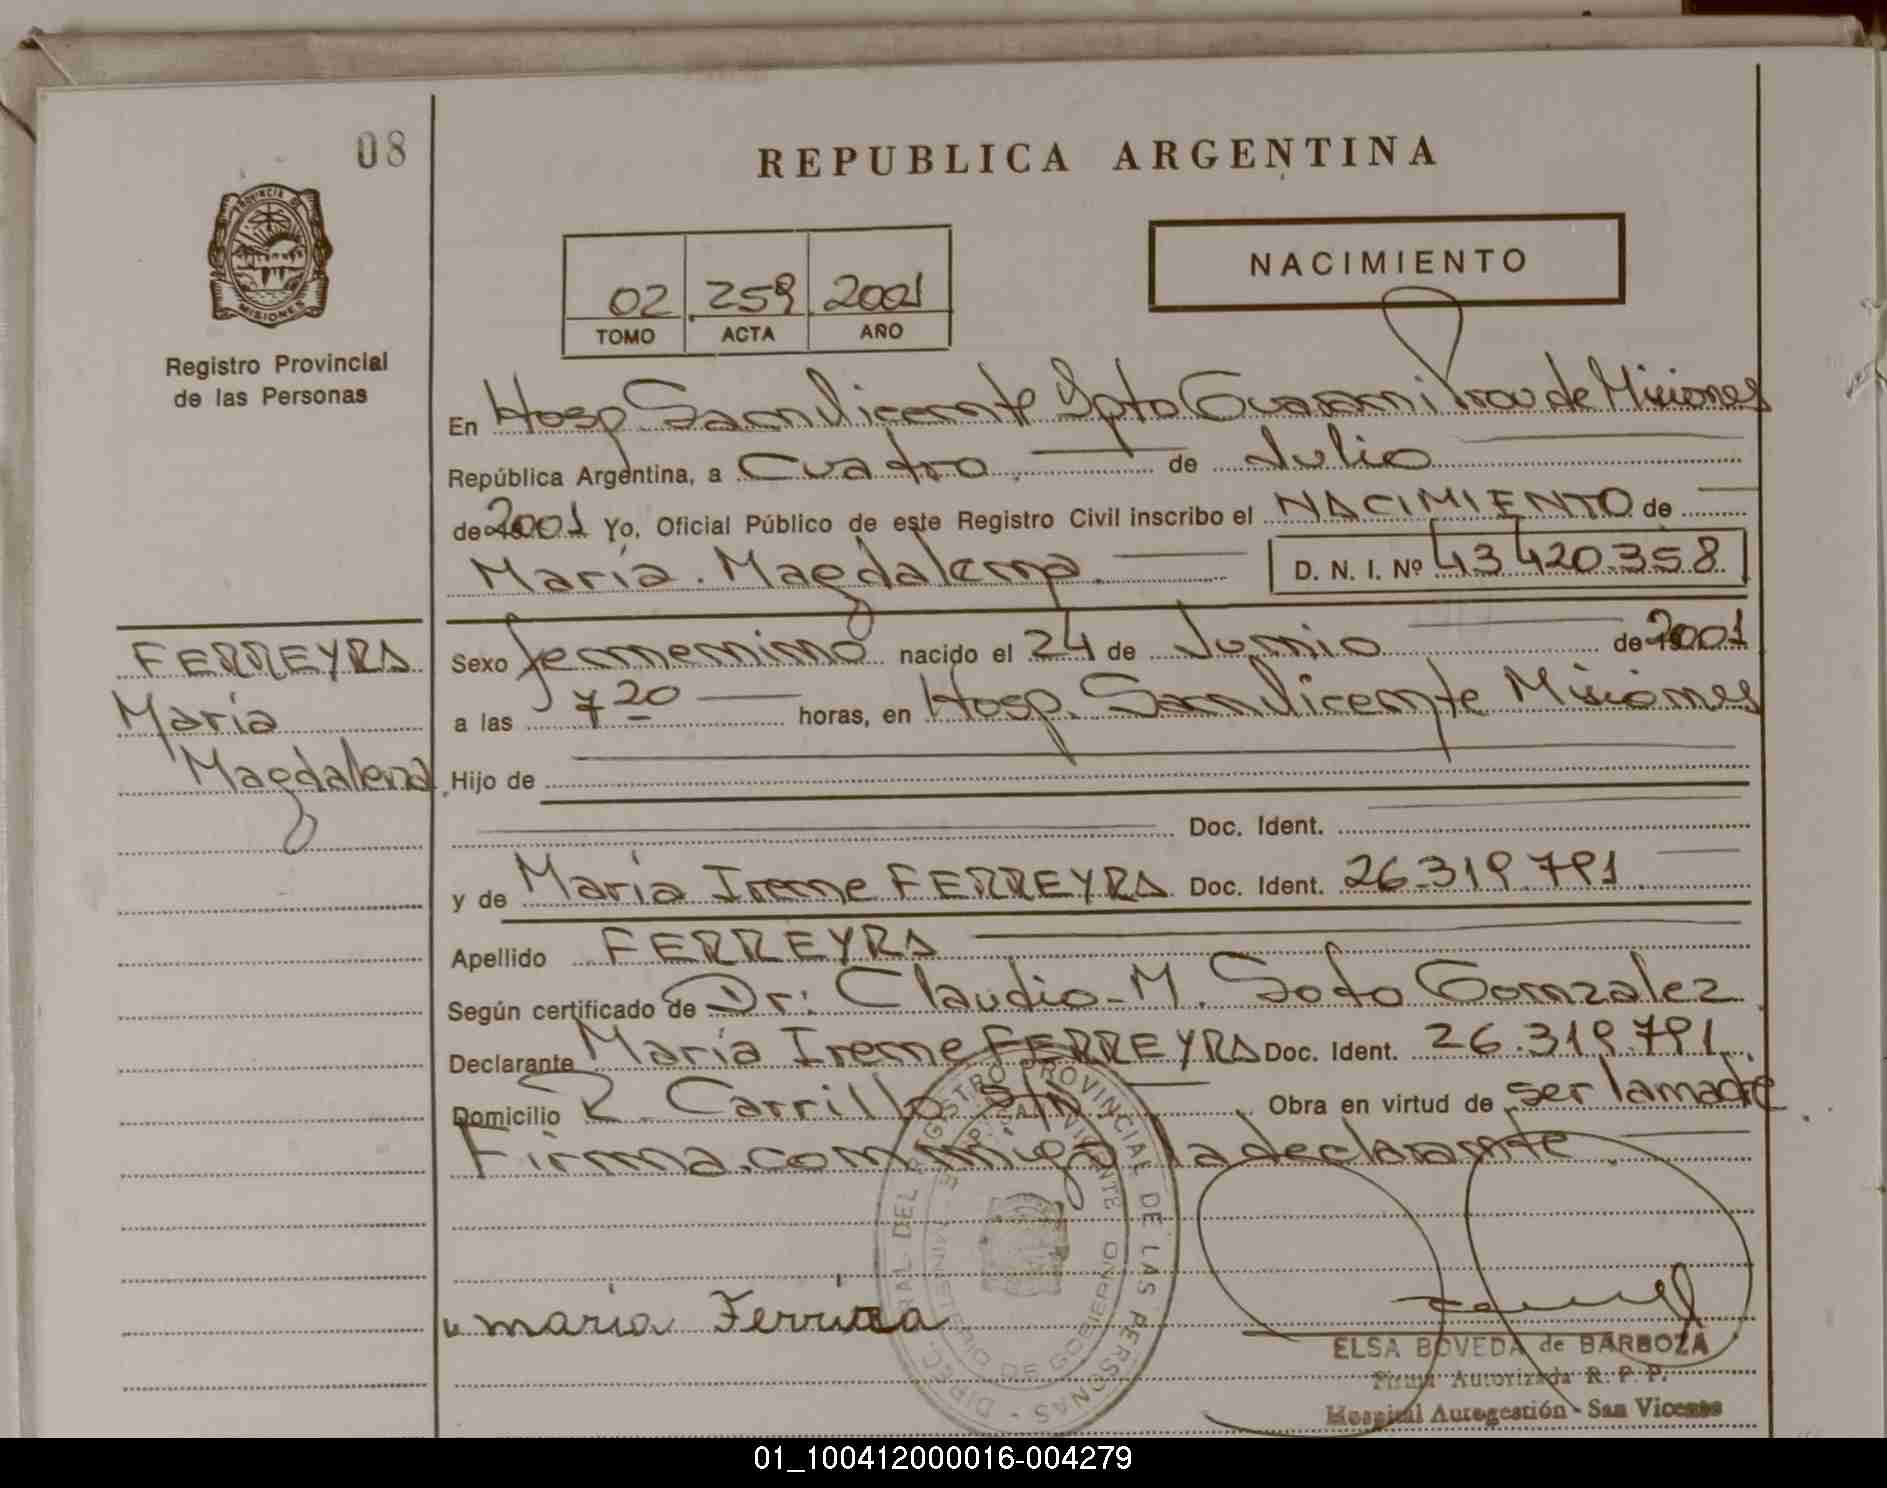 08
REPUBLICA ARGENTINA
PROVINCIA DE
MISIONES
Registro Provincial
de las Personas
NACIMIENTO
02 259 2001
TOMO ACTA AÑO
En Hosp San Vicente Dpto Guarani Prov de Misiones
República Argentina, a Cuatro de Julio
de 2001 Yo, Oficial Público de este Registro Civil inscribo el NACIMIENTO de
María Magdalena D. N. I. Nº 43420358
FERREYRA
María
Magdalena
Sexo femenino nacido el 24 de Junio de 2001
a las 7 20 horas, en Hosp. San Vicente Misiones
Hijo de
Doc. Ident.
y de María Irene FERREYRA Doc. Ident. 26.319.791
Apellido FERREYRA
Según certificado de Dr: Claudio M. Soto Gonzalez
Declarante María Irene FERREYRA Doc. Ident. 26.319.791
Domicilio R. Carrillo S/N Obra en virtud de ser la madre
Firma conmigo la declarante.
DIREC. GRAL DEL REGISTRO PROVINCIAL DE LAS PERSONAS
MINISTERIO DE GOBIERNO
maria Ferrira
ELSA BOVEDA de BARBOZA
Firma Autorizada R. P. P.
Hospital Autogestión - San Vicente
01_100412000016-004279